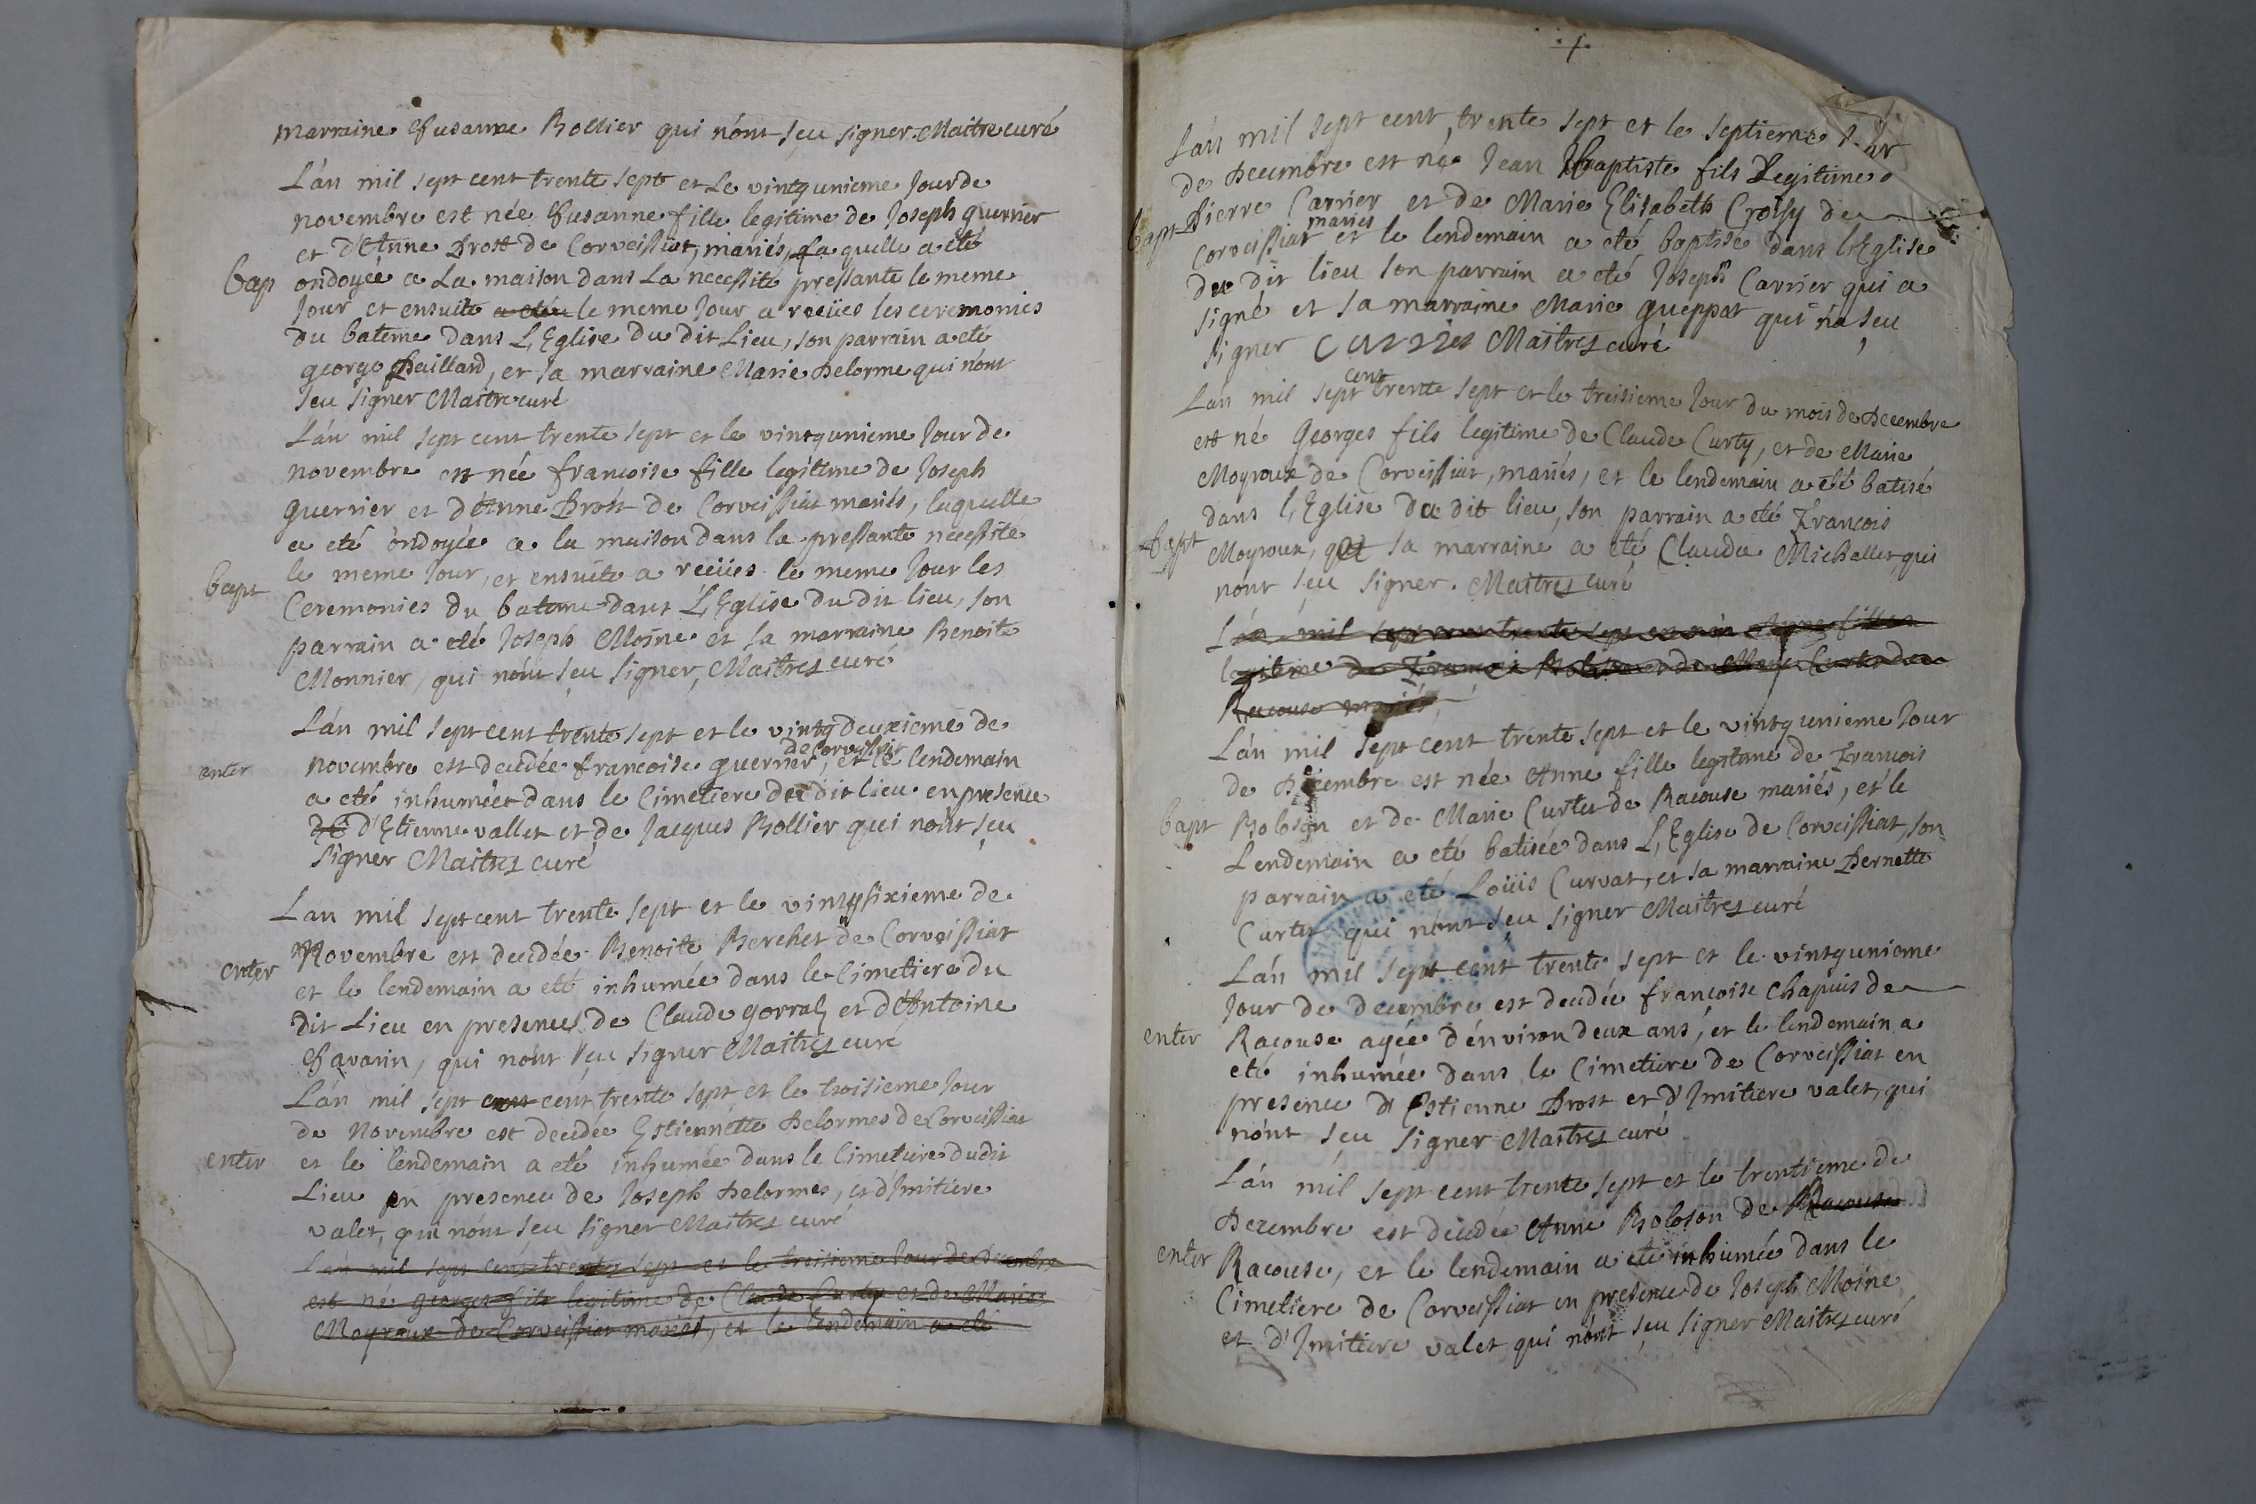 marraine Susanne Rollier qui nónt sçu signer. Maitre curé
L'án mil sept cent trente sept et Le vintgunieme Jour de
novembre est née Susanne fille legitime de Joseph guerrier
et d'Anne Brost de Corveissiat, mariés, la quelle a eté
bap ondoyée a La maison dans La necessité pressante le meme
Jour et ensuite le meme Jour a reçües les ceremonies
du bateme dans L'Eglise du dit Lieu, son parrain a eté
george Paillard, et sa marraine Marie Delorme qui nónt
sçu signer Maitre curé
L'án mil sept cent trente sept et le vintgunieme Jour de
novembre est née francoise fille legitime de Joseph
guerrier et d'Anne Brost de Corveissiat mariés, laquelle
a eté ondoyée a la maison dans la pressante necessite
bapt le meme Jour, et ensuite a reçües le meme Jour les
Ceremonies du bateme dans L'Eglise du dit lieu, son
parrain a eté Joseph Moine et sa marraine Benoite
Monnier, qui nónt sçu signer, Maitres curé
L'án mil sept cent trente sept et le vintg deuxieme de
de Corveissiat
enter novembre est decedée francoise guerrier, et le lendemain
a eté inhumée dans le Cimetiere du dit lieu en presence
de d'Etienne vallet et de Jacques Rollier qui nónt sçu
signer Maitres curé
L'an mil sept cent trente sept et le vintgsixieme de
Novembre est decedée Benoite Berchet de Corveissiat
enter et le lendemain a eté inhumée dans le Cimetiere du
dit Lieu en presences de Claude gorral, et d'Antoine
Chavarin, qui nónt sçu signer Maitres curé
L'án mil sept cent cent trente sept et le troisieme Jour
de Novembre est decedée Estiennette Delormes de Corveissiat
enter et le lendemain a eté inhumée dans le Cimetiere du dit
Lieu en presence de Joseph Delormes, et d'Imitiere
valet, qui nónt sçu signer Maitres curé
L'án mil sept cent trente sept et le troisieme Jour de Decembre
est né georges fils legitime de Claude Curty et de Marie
Moyroux de Corveissiat mariés, et le lendemain a eté
L'án mil sept cent trente sept et le septieme Jour
de Decembre est né Jean Baptiste fils Legitime
bapt Pierre Carrier et de Marie Elisabeth Croisy de
mariés
Corveissiat et le lendemain a eté baptisé dans l'Eglise
du dit lieu son parrain a eté Joseph Carrier qui a
signé et sa marraine Marie gueppat qui n'a sçu
signer Carrier Maitres curé
cent
L'án mil sept trente sept et le treisieme Jour du mois de Decembre
est né Georges fils legitime de Claude Curty, et de Marie
Moyroux de Corveissiat, mariés, et le lendemain a eté batisé
dans l'Eglise du dit lieu, son parrain a eté Francois
bapt Moyroux, et sa marraine a eté Claudu Michallet, qui
nónt sçu signer. Maitres curé
L'án mil sept cent trente sept est née Anne fille
legitime de Francois Roloson et de Marie Curtet de
Racouse mariés,
L'án mil sept cent trente sept et le vintgunieme Jour
de Decembre est née Anne fille legitime de Francois
bapt Roloson et de Marie Curtet de Racouse mariés, et le
Lendemain a eté batisée dans L'Eglise de Corveissiat, son
parrain a eté Loüis Curvat, et sa marraine Pernette
Curtet qui nónt sçu signer Maitres curé
L'án mil sept cent trente sept et le vintgunieme
Jour de decembre est decedée francoise Chapuis de
enter Racouse agée d'énviron deux ans, et le lendemain a
eté inhumée dans le Cimetiere de Corveissiat en
presence d'Estienne Brost et d'Imitiere valet, qui
nónt sçu signer Maitres curé
L'án mil sept cent trente sept et le trentieme de
Decembre est decedée Anne Roloson de Racouse
enter Racouse, et le lendemain a eté inhumée dans le
Cimetiere de Corveissiat en presence de Joseph Moine
et d'Imitiere valet qui nónt sçu signer Maitres curé